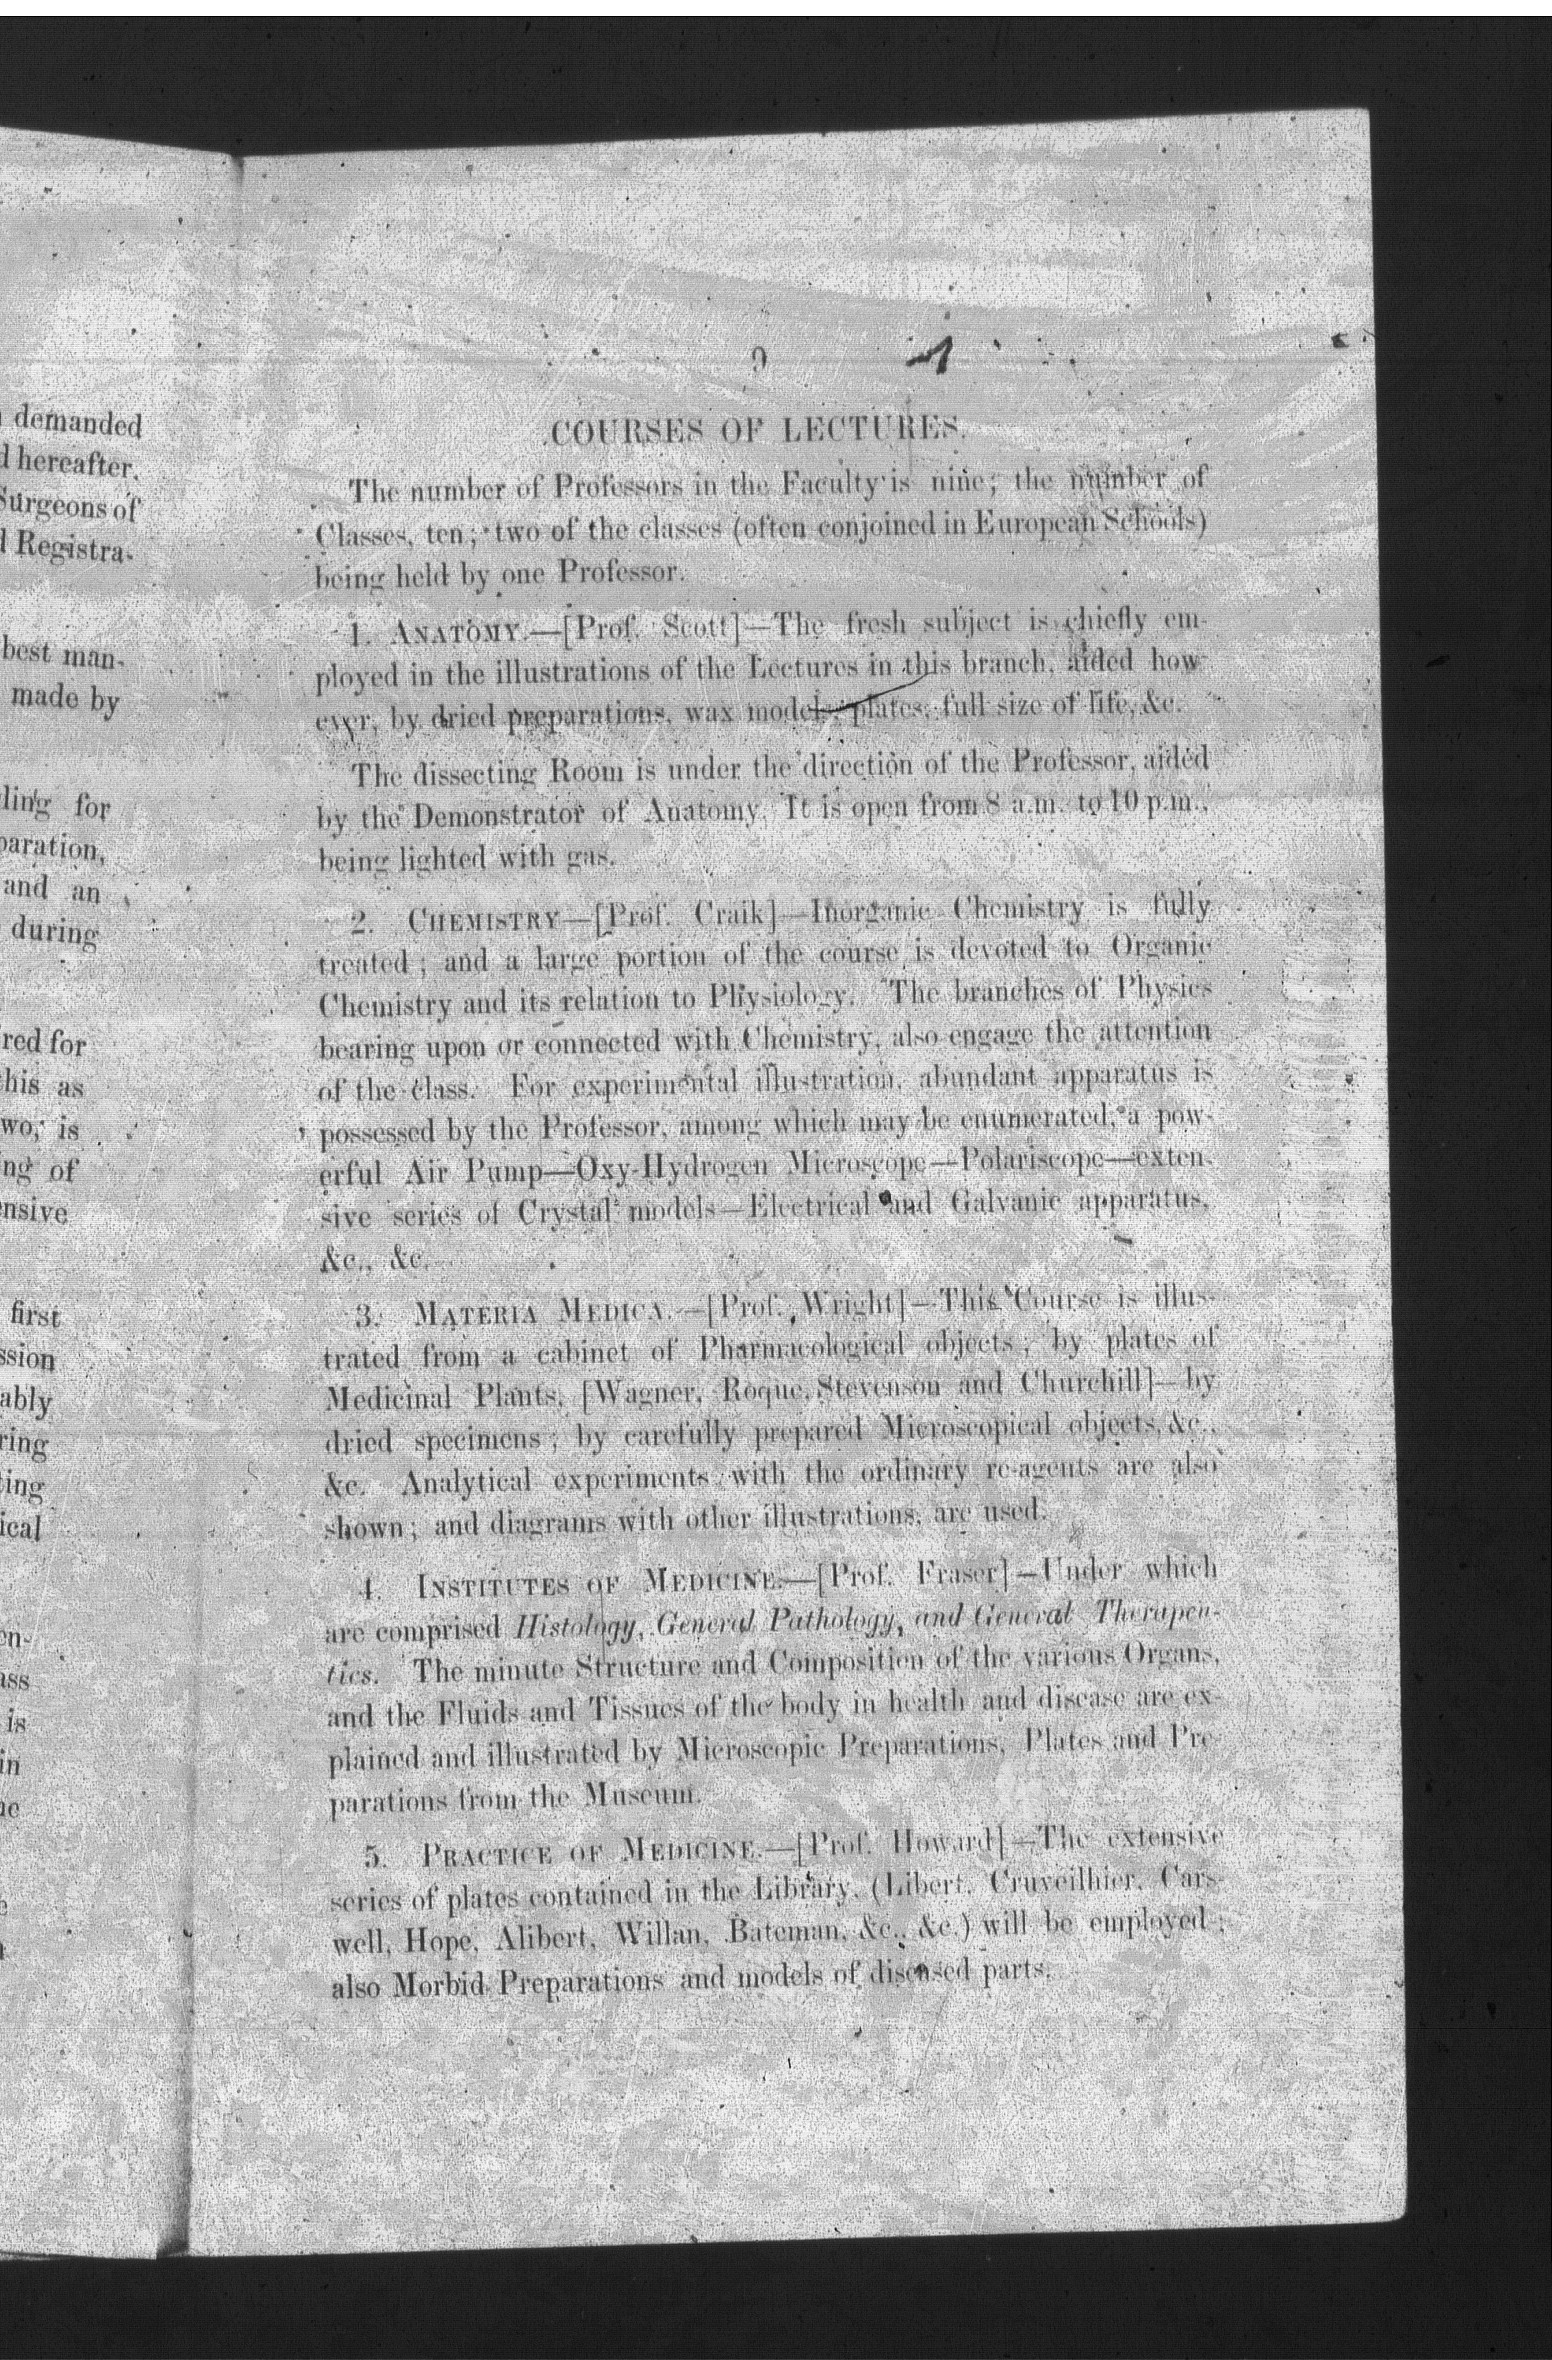 demanded
hereafter.
Surgeons of
Registra-
best man-
made by
for
and an
during
for
as
is
of
first
is
in
9
COURSES OF LECTURES.
The number of Professors in the Faculty is nine; the number of
Classes, ten; two of the classes (often conjoined in European Schools)
being held by one Professor.
1. ANATOMY.—[Prof. Scott]—The fresh subject is chiefly em-
ployed in the illustrations of the Lectures in this branch, aided how-
ever, by dried preparations, wax models, plates, full size of life, &c.
The dissecting Room is under the direction of the Professor, aided
by the Demonstrator of Anatomy. It is open from 8 a.m. to 10 p.m.,
being lighted with gas.
2. CHEMISTRY—[Prof. Craik]—Inorganic Chemistry is fully
treated; and a large portion of the course is devoted to Organic
Chemistry and its relation to Physiology. The branches of Physics
bearing upon or connected with Chemistry, also engage the attention
of the class. For experimental illustration, abundant apparatus is
possessed by the Professor, among which may be enumerated, a pow-
erful Air Pump—Oxy-Hydrogen Microscope—Polariscope—exten-
sive series of Crystal models—Electrical and Galvanic apparatus,
&c., &c.
3. MATERIA MEDICA.—[Prof. Wright]—This Course is illus-
trated from a cabinet of Pharmacological objects; by plates of
Medicinal Plants, [Wagner, Roque, Stevenson and Churchill]—by
dried specimens; by carefully prepared Microscopical objects, &c.,
&c. Analytical experiments with the ordinary re-agents are also
shown; and diagrams with other illustrations, are used.
4. INSTITUTES OF MEDICINE.—[Prof. Fraser]—Under which
are comprised Histology, General Pathology, and General Therapeu-
tics. The minute Structure and Composition of the various Organs,
and the Fluids and Tissues of the body in health and disease are ex-
plained and illustrated by Microscopic Preparations, Plates and Pre-
parations from the Museum.
5. PRACTICE OF MEDICINE.—[Prof. Howard]—The extensive
series of plates contained in the Library, (Libert, Cruveilhier, Cars-
well, Hope, Alibert, Willan, Bateman, &c., &c.) will be employed;
also Morbid Preparations and models of diseased parts.